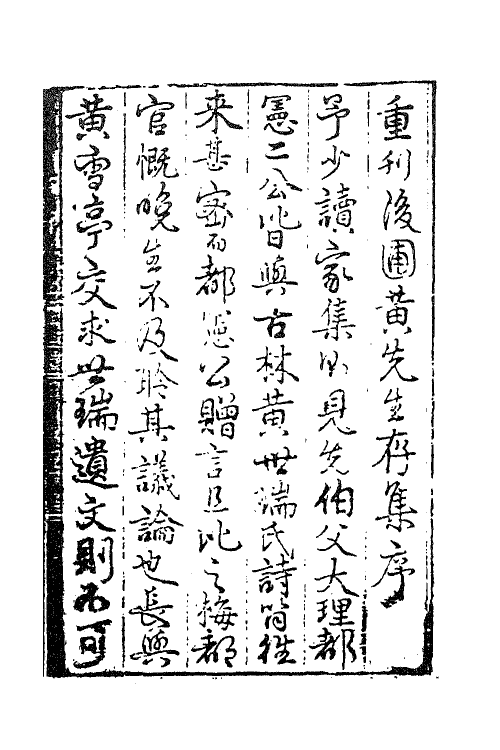 重刊後圃黄先生存集序
予少讀家集以見先伯父大理都
憲二公皆與古林黄世瑞氏詩筒徃
来甚密而都憲公贈言且比之梅都
官慨晚生不及聆其議論也長與
黄雪亭交求世瑞遺文則不可